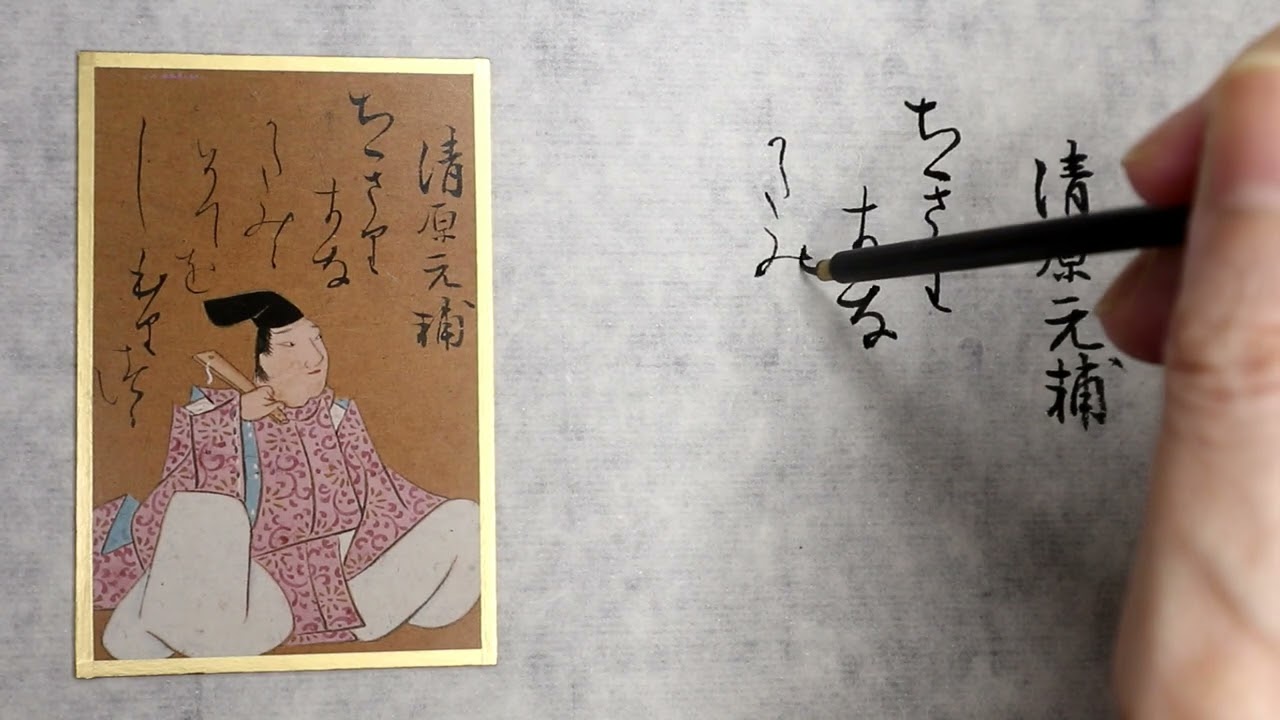 清原元補
ちきり
きな
かたみに
そてを
しほりつゝ
清原元補
ちきり
きな
かたみ